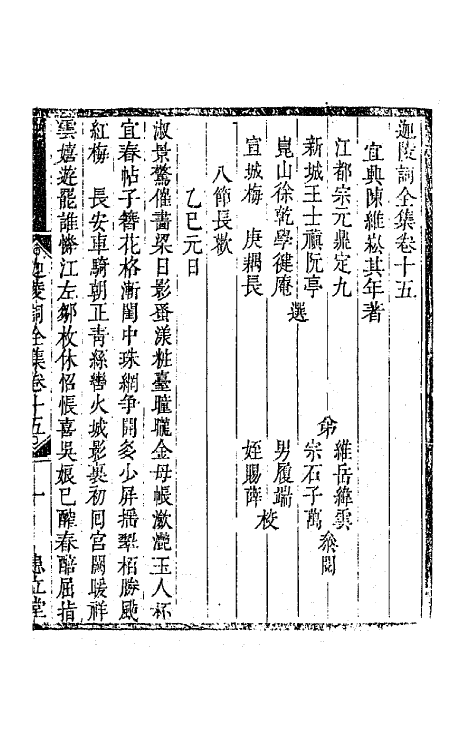 迦陵詞全集卷十五
宜興陳維崧其年著
江都宗元鼎定九
新城王士禛阮亭
崑山徐乾學健庵
宣城梅 庚耦長
選
弟
維岳緯雲
宗石子萬
叅閱
男履端
姪賜薛
校
八節長歡
乙巳元日
淑景驚催畫梁日影蚤漾粧臺曈曨金母帳瀲灔玉人杯
宜春帖子簪花格漸閨中珠網爭開多少屏摇翠栢勝颭
紅梅 長安車騎朝正靑絲轡火城影裹初囘宮闕暖祥
雲嬉遊龍誰憐江左鄒枚休怊悵喜吳娘已醡春醅屈指
迦陵詞全集卷十五
一
患立堂